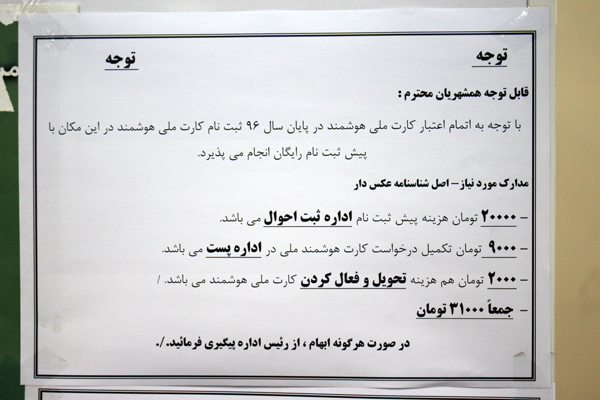 توجه توجه
قابل توجه همشهریان محترم :
با توجه به اتمام اعتبار کارت ملی هوشمند در پایان سال ۹۶ ثبت نام کارت ملی هوشمند در این مکان با
پیش ثبت نام رایگان انجام می پذیرد.
مدارک مورد نیاز – اصل شناسنامه عکس دار
– ۲۰۰۰۰ تومان هزینه پیش ثبت نام اداره ثبت احوال می باشد.
– ۹۰۰۰ تومان تکمیل درخواست کارت هوشمند ملی در اداره پست می باشد.
– ۲۰۰۰ تومان هم هزینه تحویل و فعال کردن کارت ملی هوشمند می باشد. /
– جمعاً ۳۱۰۰۰ تومان
در صورت هرگونه ابهام ، از رئیس اداره پیگیری فرمائید./.